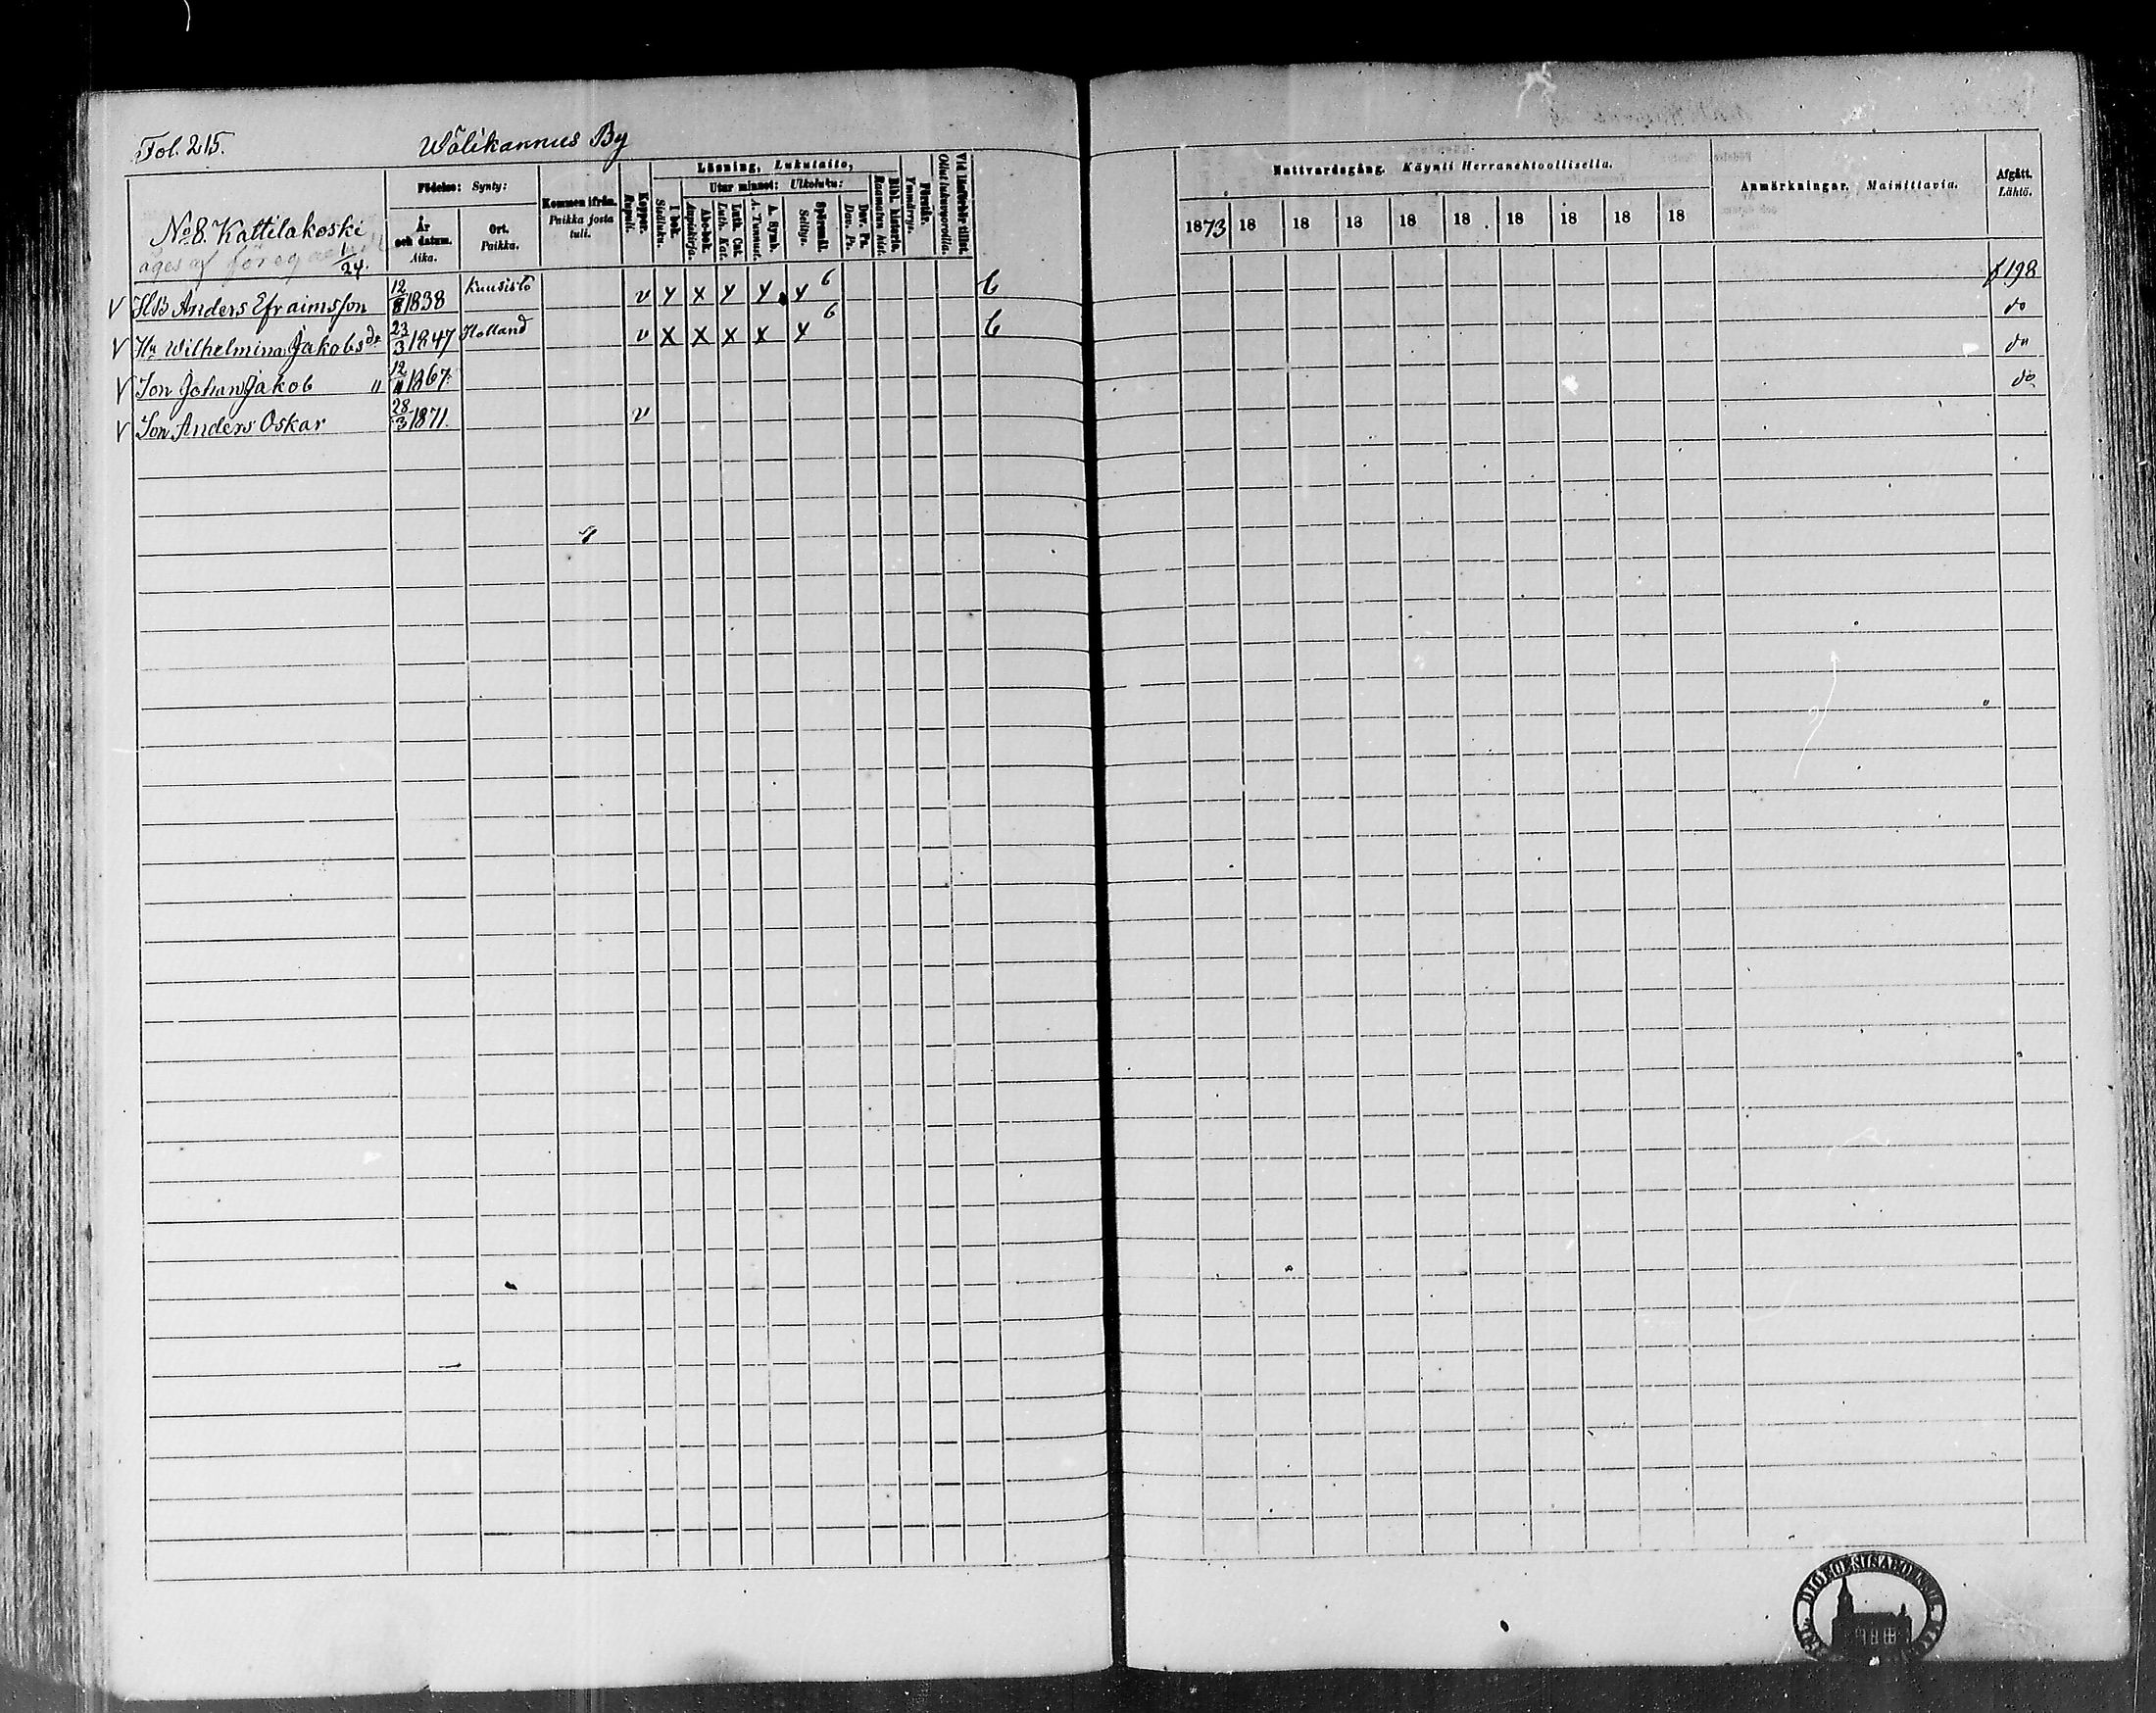 Fol. 215.
Wälikannus By
Födelse: Synty:
År och datum. Aika.
Ort. Paikka.
Kommen ifrån. Paikka josta tuli.
Koppor. Rupuli.
Läsning, Lukutaito,
I bok. Sisäluku.
Utur minnet: Ulkoluku:
Abc-bok. Aapiskirja.
Luth. Cat. Luth. Kat.
A. Symb. A. Tunnust.
Spörsmål. Selitys.
Dav. Ps. Dav. Ps.
Bibl. historia. Raamatun hist.
Förstår. Ymmärrys.
Vid läsförhör tillst. Ollut lukuvuoroilla.
Nattvardsgång. Käynti Herranehtoollisella.
1873 18 18 18 18 18 18 18 18 18
Anmärkningar. Mainittavia.
Afgått. Lähtö.
No 8. Kattilakoski
äges af föreg 1/24.
V HB Anders Efraimsson 12/8 1838 Kuusisto v y x y y y 6 b f 198
V Hu Wilhelmina Jakobsdr 23/3 1847 Holland v x x x x y 6 b do
V Son Johan Jakob " 12/11 1867. do
V Son Anders Oskar 28/3 1871. v do